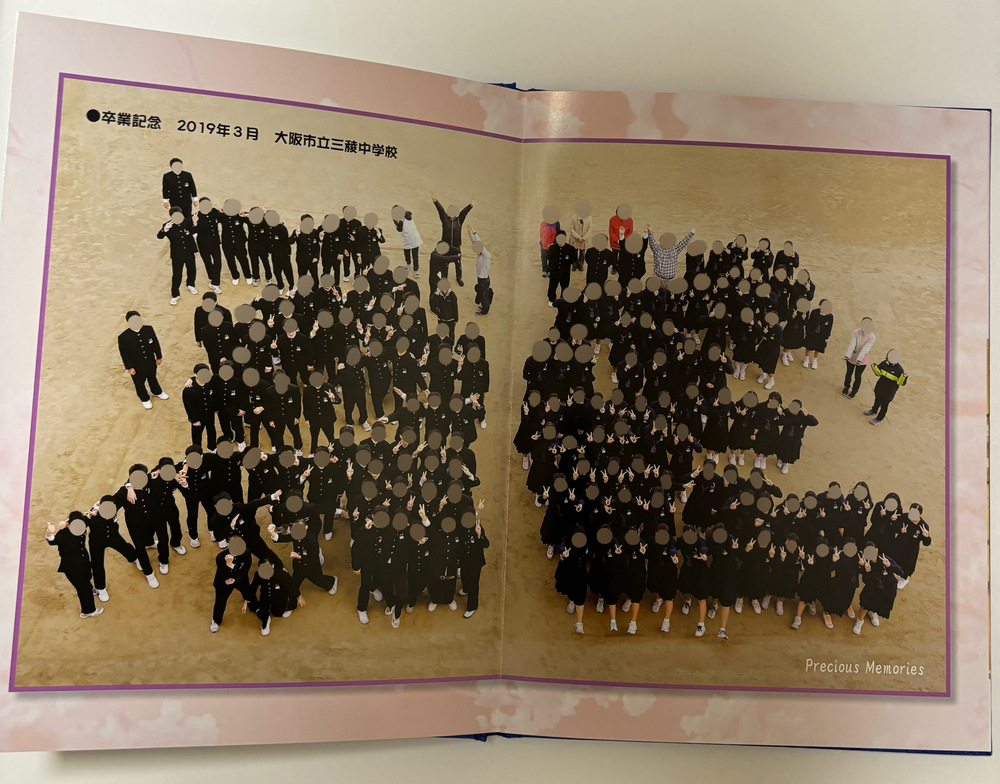 ●卒業記念 2019年3月 大阪市立三稜中学校
Precious Memories